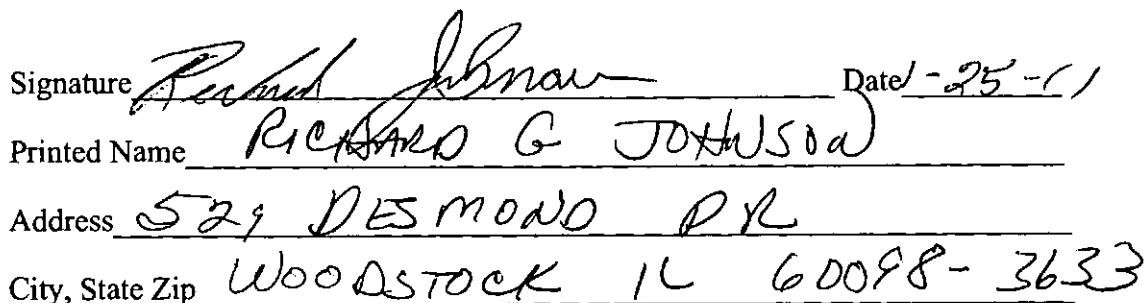 Signature Richard Johnson Date 1-25-11
Printed Name RICHARD G JOHNSON
Address 529 DESMOND DR
City, State Zip WOODSTOCK IL 60098-3633